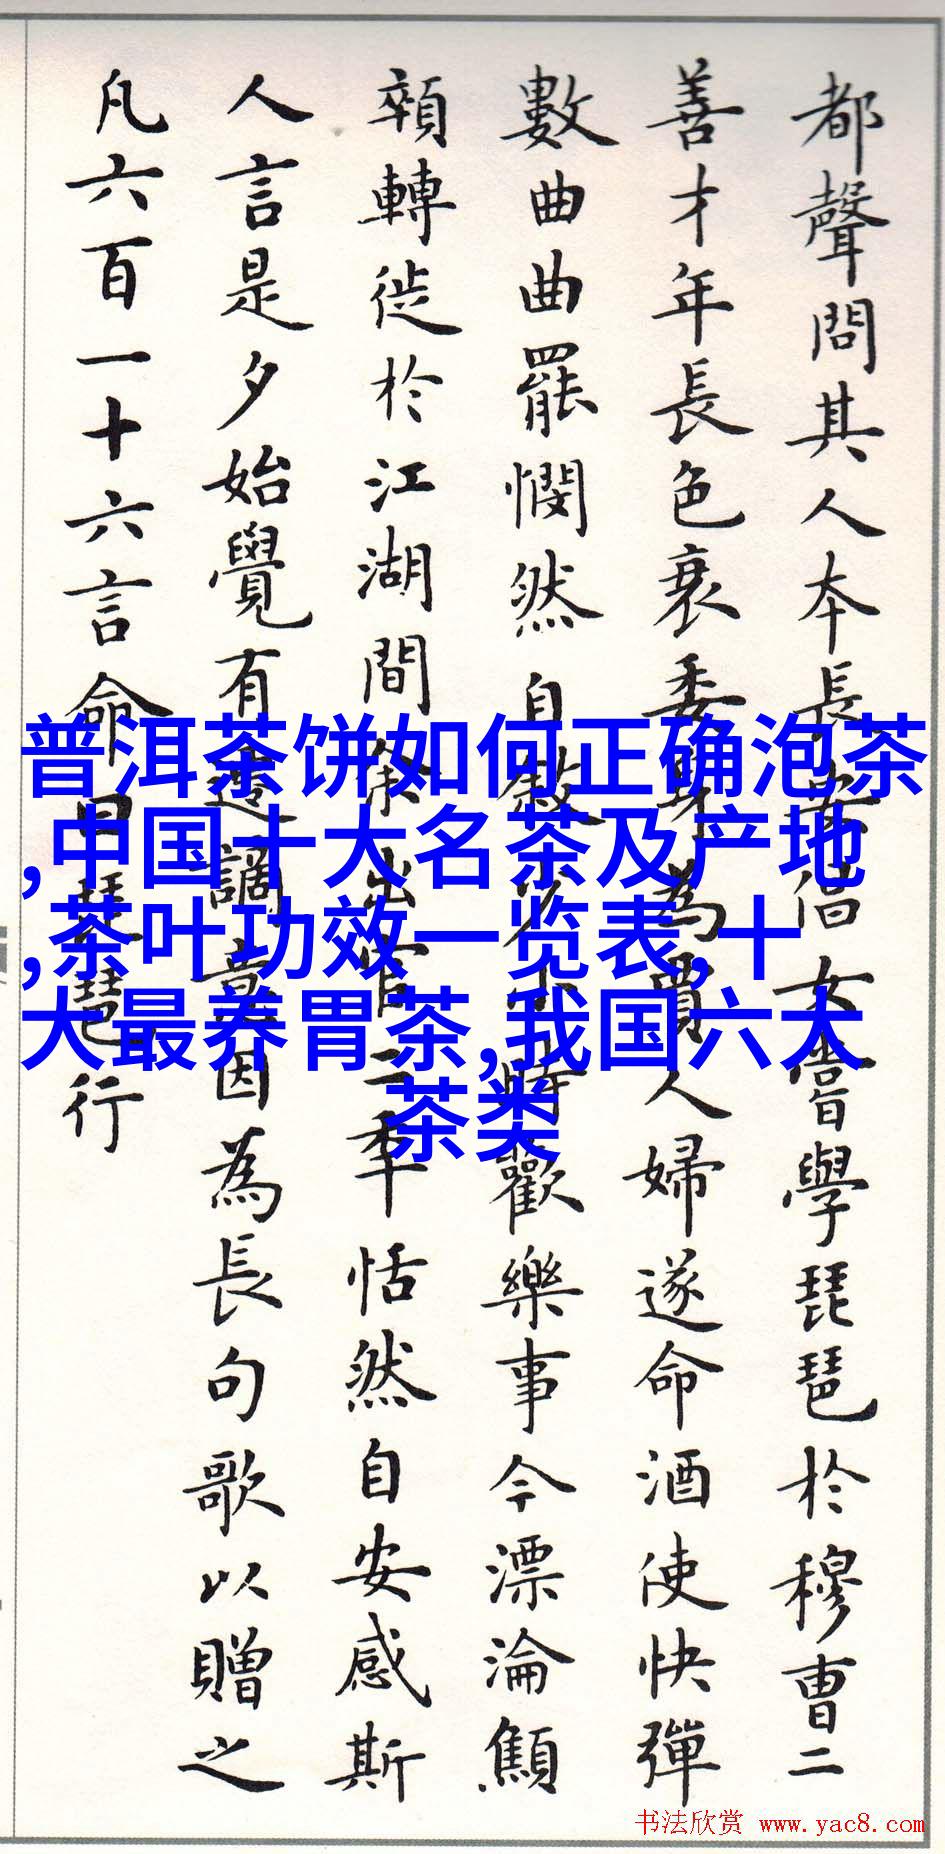 都聲問其人本長安倡女嘗學琵琶於穆曹二
善才年長色衰委身為賈人婦遂命酒使快彈
數曲曲罷憫然自敘少小時歡樂事今漂淪顛
顇轉徙於江湖間余出官二年恬然自安感斯
人言是夕始覺有遷謫意因為長句歌以贈之
凡六百一十六言命曰琵琶行
普洱茶饼如何正确泡茶
,中国十大名茶及产地
,茶叶功效一览表,十
大最养胃茶,我国六大
茶类
书法欣赏 www.yac8.com